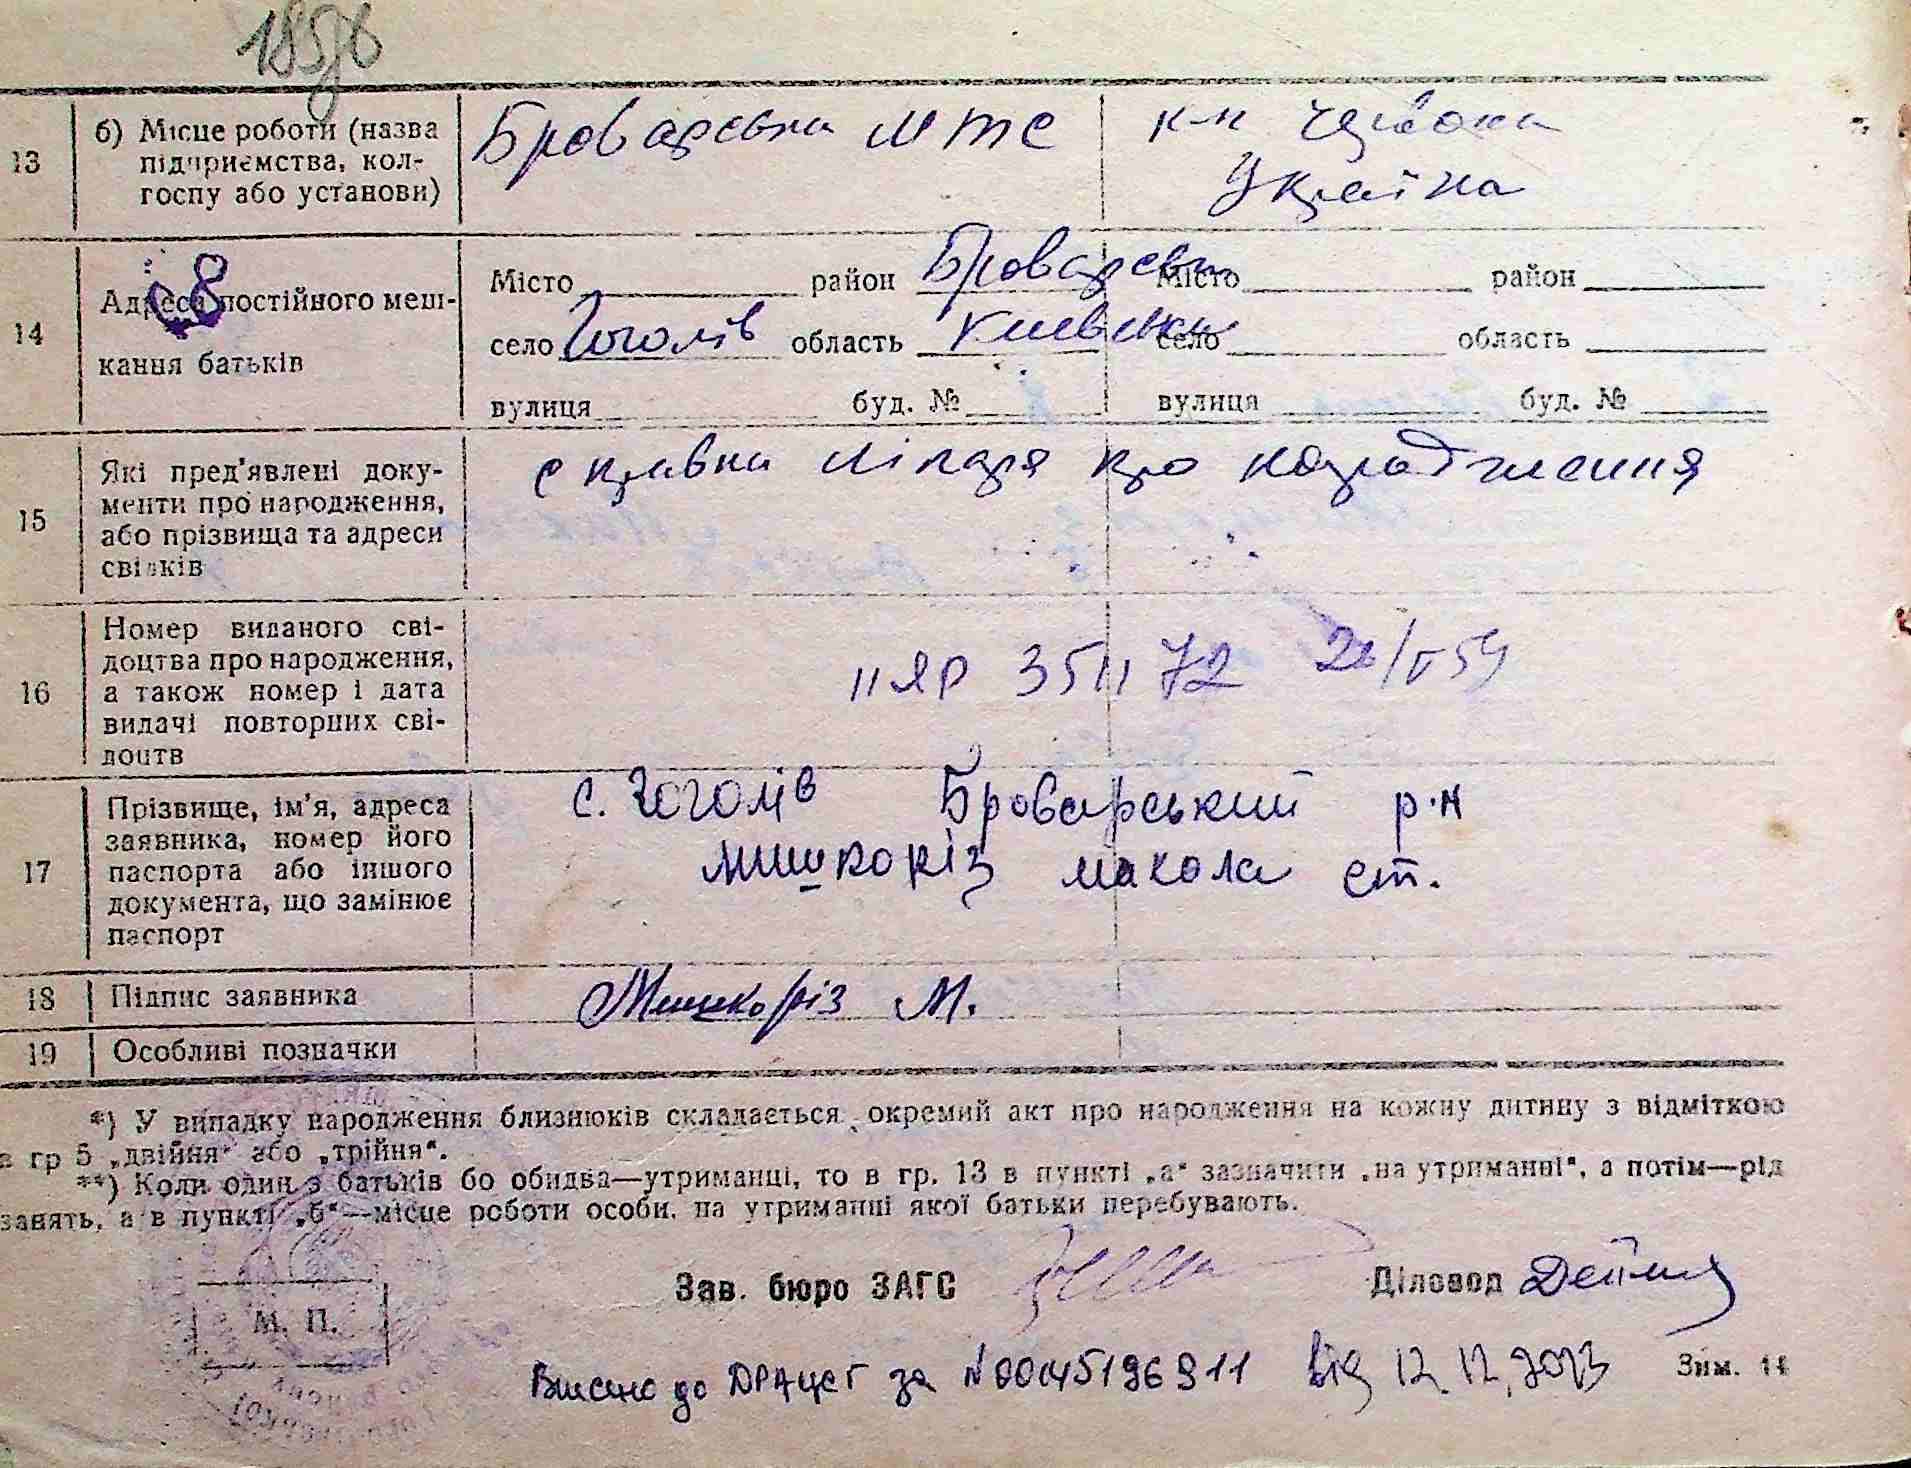 185
13 б) Місце роботи (назва підприємства, кол-госпу або установи) Броварська МТС к-п Червона Україна
14 Адреса постійного меш-кання батьків
Місто район Броварськ Місто район
село Гоголів область Киевська село область
вулиця буд. № вулиця буд. №
15 Які пред'явлені доку-менти про народження, або прізвища та адреси свідків справка лікаря про народження
16 Номер виданого сві-доцтва про народження, а також номер і дата видачі повторних сві-доцтв ІІ ЯР 351172 26/V 59
17 Прізвище, ім'я, адреса заявника, номер його паспорта або іншого документа, що замінює паспорт с. Гоголів Броварський р-н
Мишкоріз Микола ст.
18 Підпис заявника Мишкоріз М.
19 Особливі позначки
*) У випадку народження близнюків складається окремий акт про народження на кожну дитину з відміткою
в гр 5 „двійня" або „трійня".
**) Коли один з батьків бо обидва—утриманці, то в гр. 13 в пункті „а" зазначити „на утриманні", а потім—рід
занять, а в пункті „б"—місце роботи особи, на утриманні якої батьки перебувають.
М. П.
Зав. бюро ЗАГС Діловод
Внесено до ДРАЦСГ за №00145196911 від 12.12.2023 Зам. 11